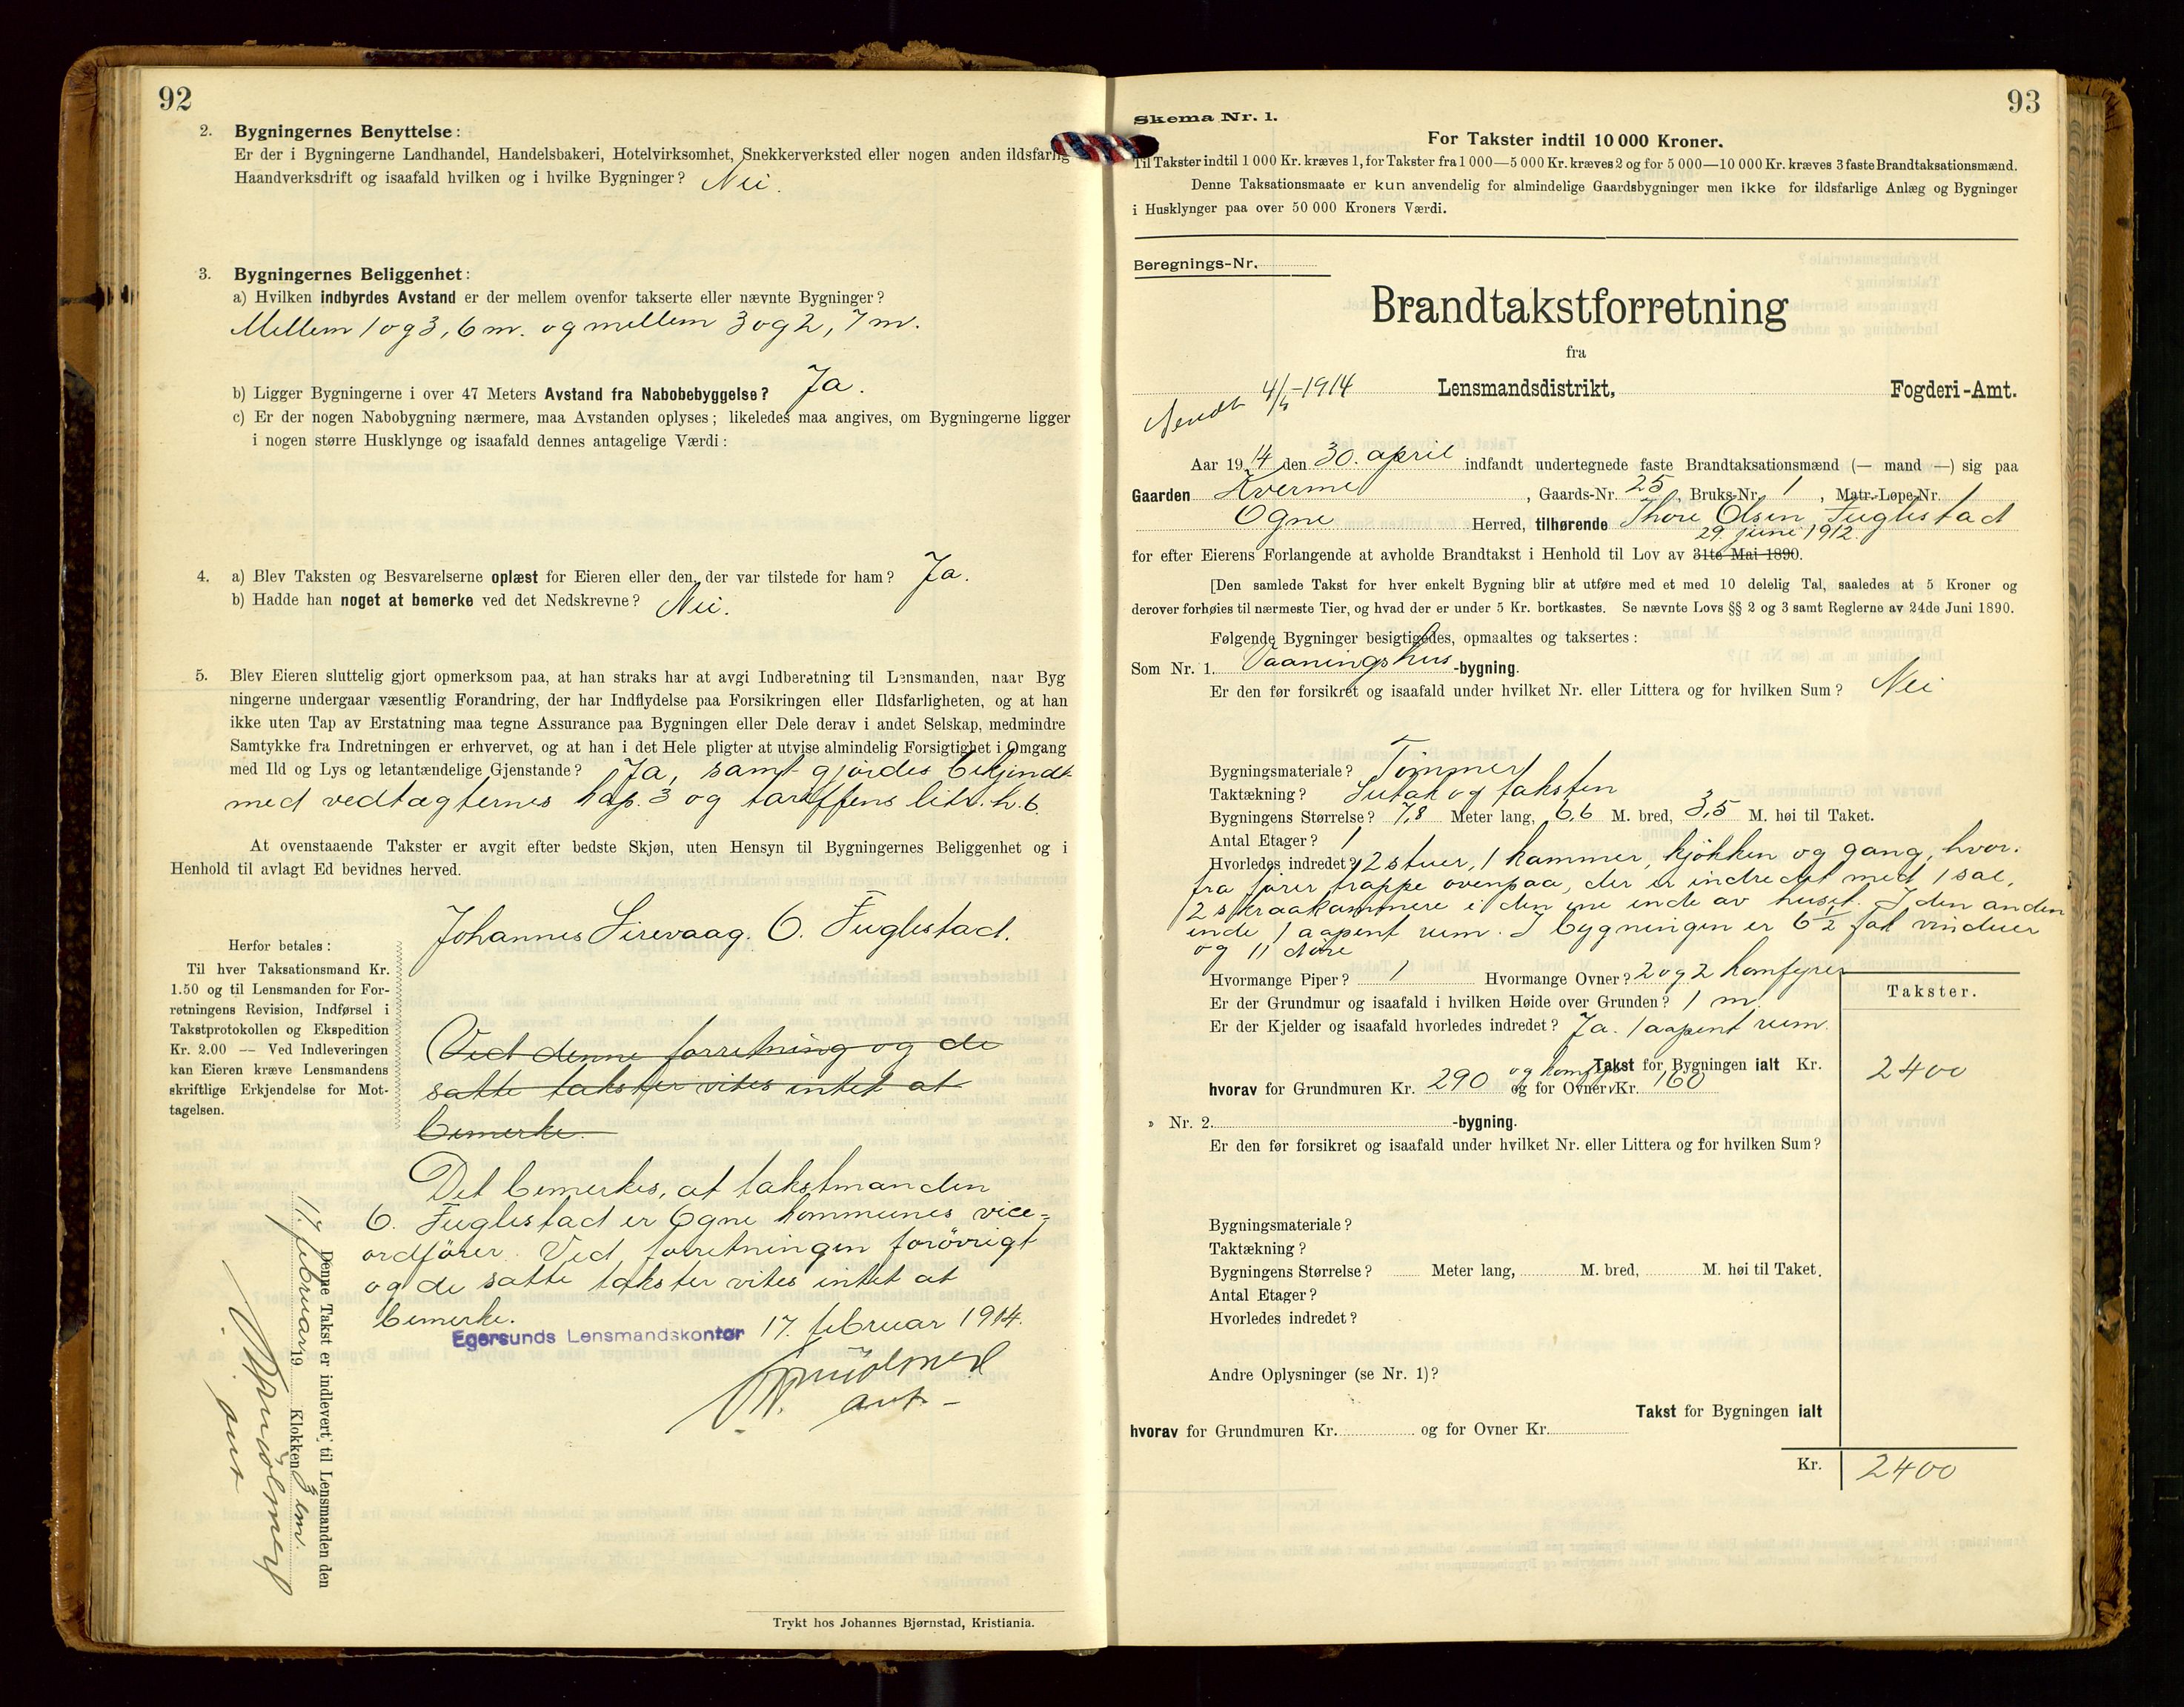 92
2. Bygningernes Benyttelse:
Er der i Bygningerne Landhandel, Handelsbakeri, Hotelvirksomhet, Snekkerverksted eller nogen anden ildsfarlig
Haandverksdrift og isaafald hvilken og i hvilke Bygninger? Nei.
3. Bygningernes Beliggenhet:
a) Hvilken indbyrdes Avstand er der mellem ovenfor takserte eller nævnte Bygninger?
Mellem 1 og 3, 6 m. og mellem 3 og 2, 7 m.
b) Ligger Bygningerne i over 47 Meters Avstand fra Nabobebyggelse? Ja.
c) Er der nogen Nabobygning nærmere, maa Avstanden oplyses; likeledes maa angives, om Bygningerne ligger
i nogen større Husklynge og isaafald dennes antagelige Værdi:
4. a) Blev Taksten og Besvarelserne oplæst for Eieren eller den, der var tilstede for ham? Ja.
b) Hadde han noget at bemerke ved det Nedskrevne? Nei.
5. Blev Eieren sluttelig gjort opmerksom paa, at han straks har at avgi Indberetning til Lensmanden, naar Byg
ningerne undergaar væsentlig Forandring, der har Indflydelse paa Forsikringen eller Ildsfarligheten, og at han
ikke uten Tap av Erstatning maa tegne Assurance paa Bygningen eller Dele derav i andet Selskap, medmindre
Samtykke fra Indretningen er erhvervet, og at han i det Hele pligter at utvise almindelig Forsigtighet i Omgang
med Ild og Lys og letantændelige Gjenstande? Ja, samt gjordes bekjendt
med vedtægternes kap. 3 og tariffens litr. h. 6.
At ovenstaaende Takster er avgit efter bedste Skjøn, uten Hensyn til Bygningernes Beliggenhet og i
Henhold til avlagt Ed bevidnes herved.
Johannes Sirevaag. O. Fuglestad.
Herfor betales:
Til hver Taksationsmand Kr.
1.50 og til Lensmanden for For-
retningens Revision, Indførsel i
Takstprotokollen og Ekspedition
Kr. 2.00 — Ved Indleveringen
kan Eieren kræve Lensmandens
skriftlige Erkjendelse for Mot-
tagelsen.
Ved denne forretning og de
satte takster vites intet at
bemerke.
Det bemerkes, at takstmanden
O. Fuglestad er Ogne kommunes vice=
ordfører. Ved forretningen forøvrigt
og de satte takster vites intet at
bemerke.
Egersunds Lensmandskontor 17. februar 1914.
Denne Takst er indlevert til Lensmanden den
17. februar 19 Klokken 3 em.
Trykt hos Johannes Bjørnstad, Kristiania.
93
Skema Nr. 1.
For Takster indtil 10 000 Kroner.
Til Takster indtil 1 000 Kr. kræves 1, for Takster fra 1 000—5 000 Kr. kræves 2 og for 5 000—10 000 Kr. kræves 3 faste Brandtaksationsmænd.
Denne Taksationsmaate er kun anvendelig for almindelige Gaardsbygninger men ikke for ildsfarlige Anlæg og Bygninger
i Husklynger paa over 50 000 Kroners Værdi.
Beregnings-Nr.
Brandtakstforretning
fra
Lensmandsdistrikt, Fogderi-Amt.
Sendt 4/5-1914
Aar 1914 den 30. april indfandt undertegnede faste Brandtaksationsmænd (— mand —) sig paa
Gaarden Kverme, Gaards-Nr. 25, Bruks-Nr. 1, Matr.-Løpe-Nr.
Ogne Herred, tilhørende Thore Olsen Fuglestad
29. juni 1912.
for efter Eierens Forlangende at avholde Brandtakst i Henhold til Lov av 31te Mai 1890.
[Den samlede Takst for hver enkelt Bygning blir at utføre med et med 10 delelig Tal, saaledes at 5 Kroner og
derover forhøies til nærmeste Tier, og hvad der er under 5 Kr. bortkastes. Se nævnte Lovs §§ 2 og 3 samt Reglerne av 24de Juni 1890.
Følgende Bygninger besigtigedes, opmaaltes og taksertes:
Som Nr. 1. Vaaningshus-bygning.
Er den før forsikret og isaafald under hvilket Nr. eller Littera og for hvilken Sum? Nei
Bygningsmateriale? Tømmer
Taktækning? Sutak og taksten
Bygningens Størrelse? 7,8 Meter lang, 6,6 M. bred, 3,5 M. høi til Taket.
Antal Etager? 1
Hvorledes indredet? 2 stuer, 1 kammer, kjøkken og gang, hvor-
fra fører trappe ovenpaa, der er indredet med 1 sal,
2 skraakammere i den ene ende av huset. I den anden
ende 1 aapent rum. I bygningen er 6 1/2 fat vinduer
og 11 døre
Hvormange Piper? 1 Hvormange Ovner? 2 og 2 komfyrer
Er der Grundmur og isaafald i hvilken Høide over Grunden? 1 m.
Er der Kjelder og isaafald hvorledes indredet? Ja. 1 aapent rum.
Takster.
Takst for Bygningen ialt Kr. 2400
og komf.
hvorav for Grundmuren Kr. 290 og for Ovner Kr. 160
» Nr. 2. -bygning.
Er den før forsikret og isaafald under hvilket Nr. eller Littera og for hvilken Sum?
Bygningsmateriale?
Taktækning?
Bygningens Størrelse? Meter lang, M. bred, M. høi til Taket.
Antal Etager?
Hvorledes indredet?
Andre Oplysninger (se Nr. 1)?
Takst for Bygningen ialt
hvorav for Grundmuren Kr. og for Ovner Kr.
Kr. 2400